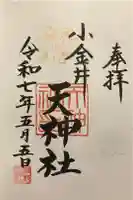 奉拝
小金井
天神社
令和七年五月五日